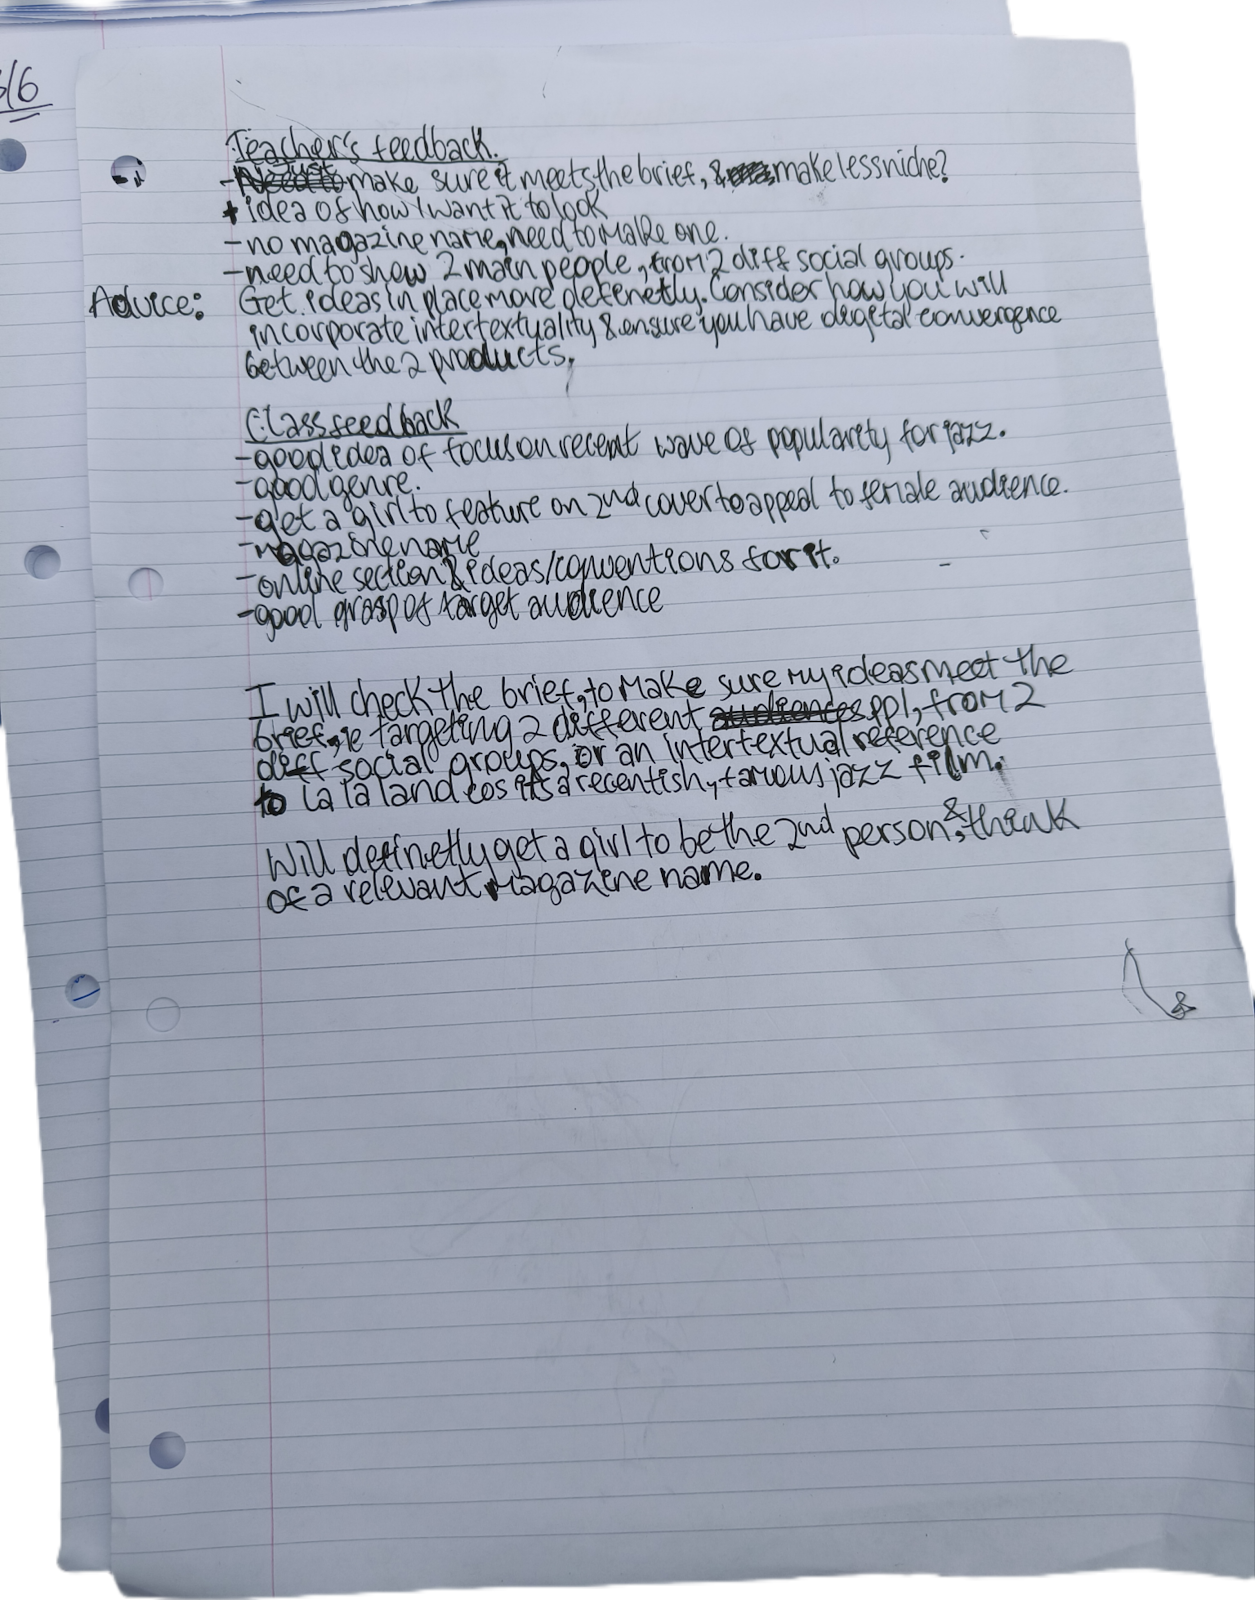 3/6
Teacher's feedback.
- Just make sure it meets the brief, & make less niche?
+ idea of how I want it to look
- no magazine name, need to make one.
- need to show 2 main people, from 2 diff social groups.
Advice: Get ideas in place more defenetly. Consider how you will
incorporate intertextuality & ensure you have degetal convergence
between the 2 products.
Class feedback
- good idea of focus on recent wave of popularity for jazz.
- good genre.
- get a girl to feature on 2nd cover to appeal to female audience.
- magazine name
- online section & ideas/conventions for it.
- good grasp of target audience
I will check the brief, to make sure my ideas meet the
brief, ie targeting 2 different audiences ppl, from 2
diff social groups, or an intertextual reference
to la la land cos its a recentish, famous jazz film.
Will definetly get a girl to be the 2nd person, & think
of a relevant magazine name.
&